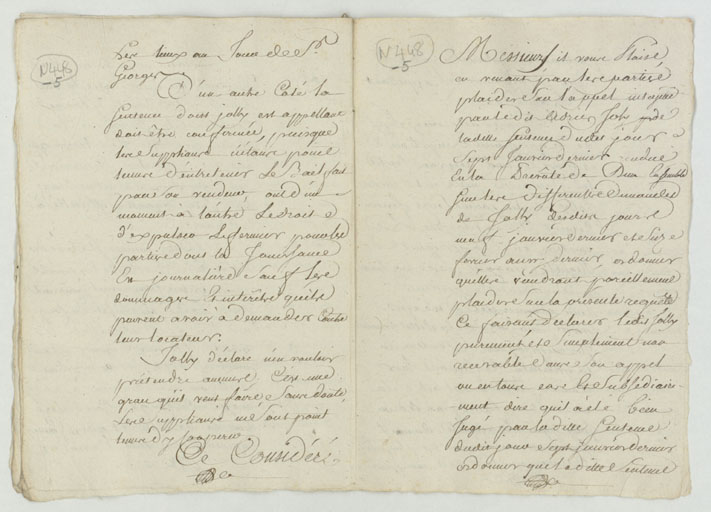 N 448
5
Les lieux au Jour de St
Georges
D'un autre Coté la
Sentence dont jolly est appellant
doit être confirmée, puisque
les supplians n'étant point
tenus d'entretenir Le Bail fait
par son vendeur, ont d'un
moment à l'autre Le droit
d'expulser Le fermier pour les
parties dont la Jouissance
Est journalière sauf Les
dommages Et interêts qu'ils
peuvent avoir à demander Contre
leur locateur.
Jolly déclare n'en vouloir
prétendre aucuns, C'est une
grace qu'il veut faire sans doute,
les supplians ne sont point
tenus d'y
Ce Considéré
N 448
5
Messieurs il vous Plaise
en venant par les parties
plaider sur l'appel interjetté
par ledit Jolly de
ladite Sentence dudit jour
Sept Janvier dernier rendue
En la Ensemble
sur les différentes demandes
de Jolly des dits jours
neuf janvier dernier et
fevrier aussi dernier, ordonner
qu'elles viendront pareillement
plaider sur la présente requête
Ce faisant déclarer ledit Jolly
purement et simplement non
recevable dans son appel
ou en tous cas Et subsidiaire-
ment dire qu'il a été bien
Jugé par la ditte Sentence
dudit jour Sept janvier dernier
ordonner que la ditte Sentence